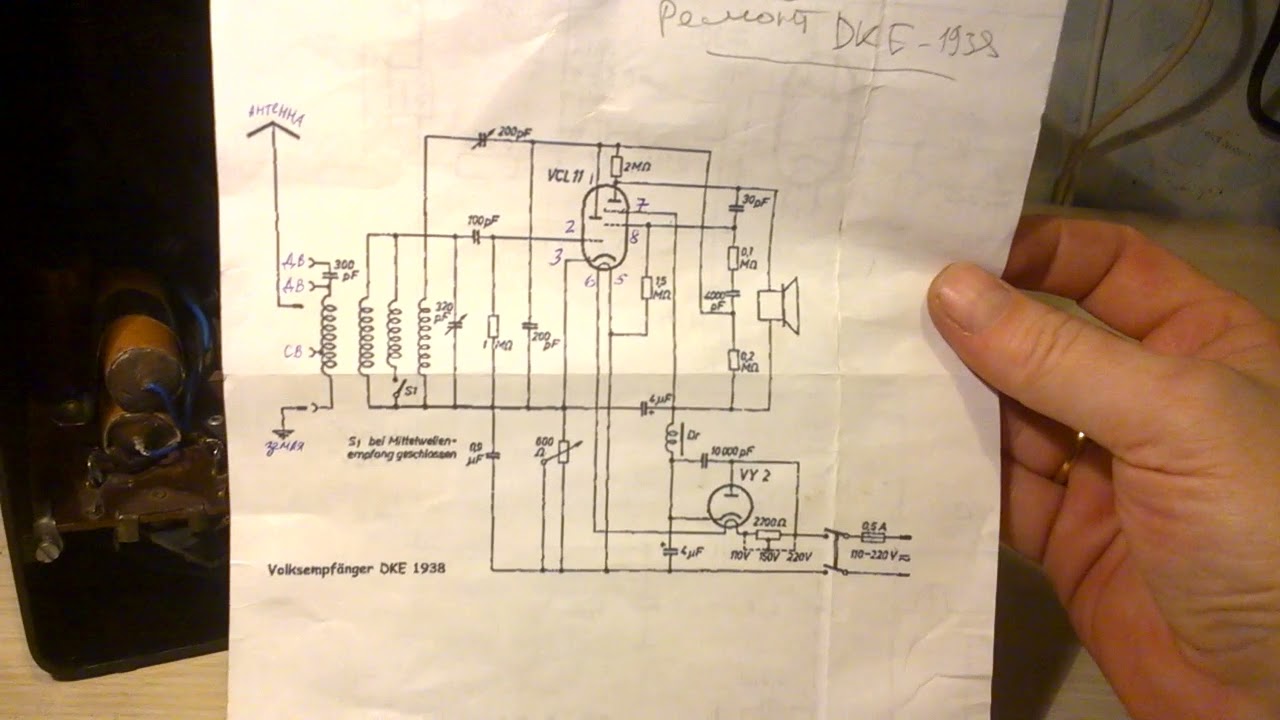 Ремонт DKE-1938
АНТЕННА
200pF
2MΩ
VCL 11
1
7
30pF
100pF
2
8
3
0,1 MΩ
ДВ
300 pF
6
5
1,5 MΩ
ДВ
4000 pF
320 pF
1 MΩ
200 pF
СВ
0,2 MΩ
S1
4µF
ЗЕМЛЯ
S₁ bei Mittelwellen-
empfang geschlossen
600 Ω
Dr
10 000 pF
µF
VY 2
2700Ω
0,5 A
4µF
110V 150V 220V
110-220V
Volksempfänger DKE 1938